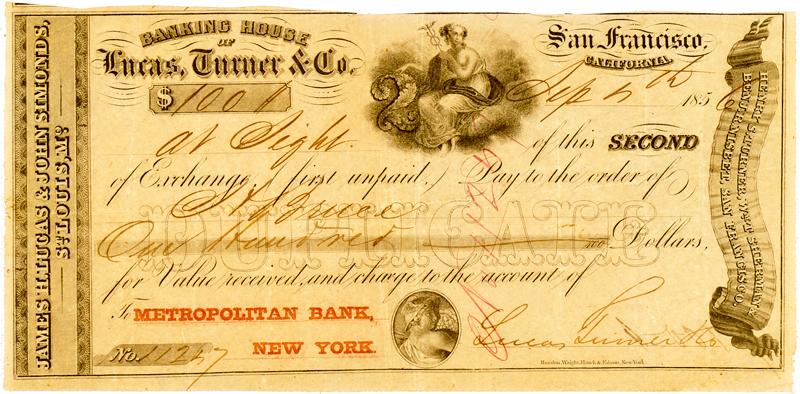 JAMES H. LUCAS & JOHN SIMONDS,
ST LOUIS, Mo
BANKING HOUSE
OF
Lucas, Turner & Co.
$ 100
San Francisco,
CALIFORNIA.
Sep 5th 1856
At Sight. of this SECOND
of Exchange, first unpaid. Pay to the order of
One Hundred Dollars,
DUPLICATE
for Value received, and charge to the account of
To METROPOLITAN BANK,
NEW YORK.
No. 11247
Lucas Turner & Co
HENRY S. TURNER, WM T. SHERMAN &
SAN FRANCISCO.